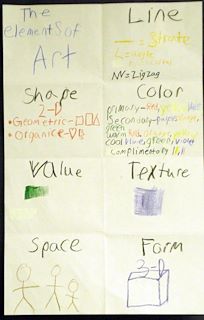 The
elements of
Art
Line
= Straite
L = angle
NV = Zigzag
Shape
2-D
• Geometric-
• Organice-
Color
primary-Red, yellow, blue
Secondary-
green
warm Red, orange, yellow
cool blue, green, violet
complimentory
Value
Texture
Space
Form
3-D